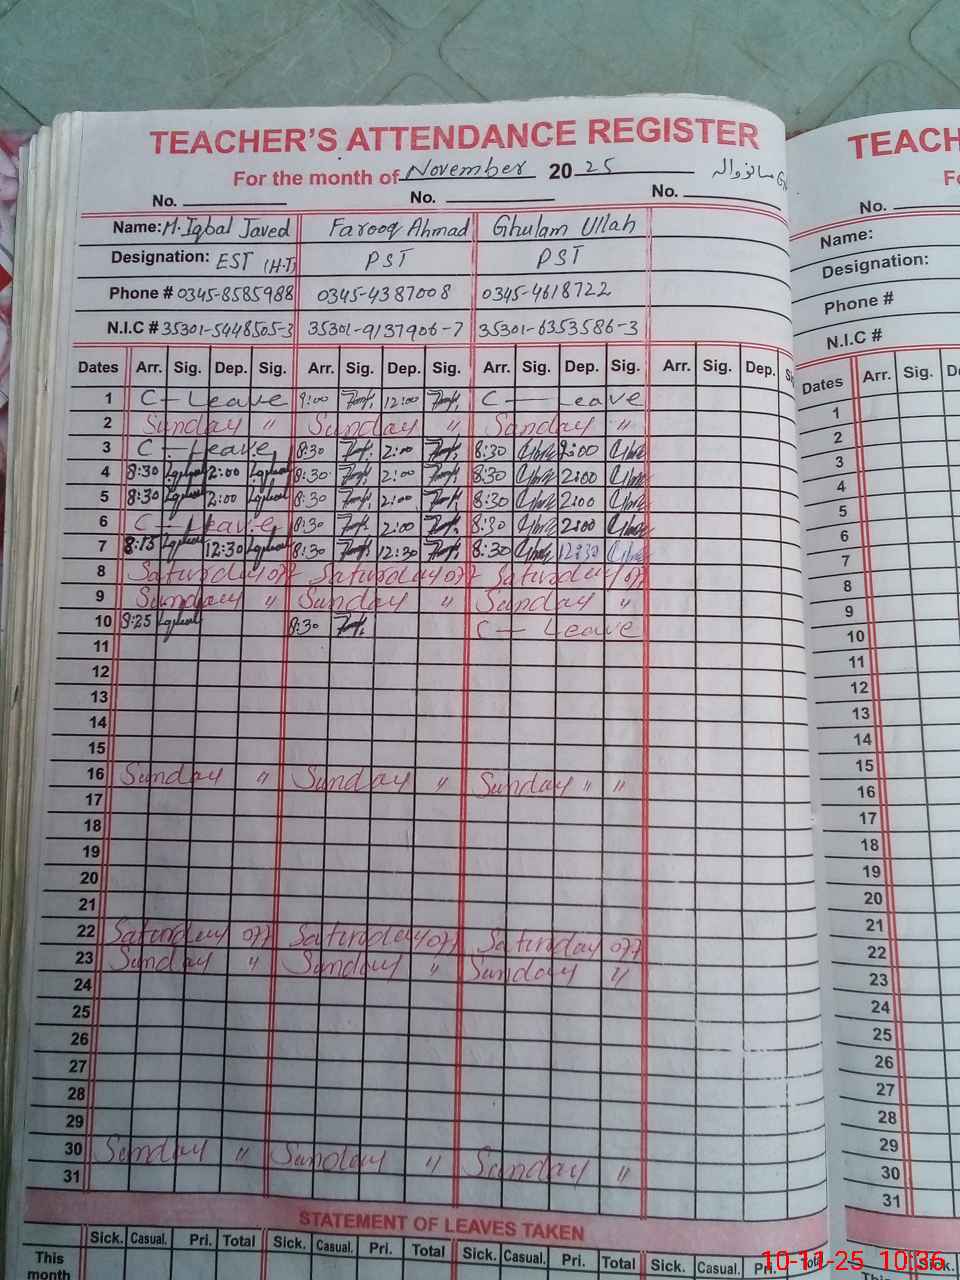 TEACHER'S ATTENDANCE REGISTER
For the month of November 2025
No. No. No.
Name: M. Iqbal Javed Farooq Ahmad Ghulam Ullah
Designation: EST (H.T) PST PST
Phone # 0345-8585988 0345-4387008 0345-4618722
N.I.C # 35301-5448505-3 35301-9137906-7 35301-6353586-3
Dates Arr. Sig. Dep. Sig. Arr. Sig. Dep. Sig. Arr. Sig. Dep. Sig. Arr. Sig. Dep.
1 C - Leave 9:00 12:00 C - Leave
2 Sunday " Sunday " Sunday "
3 C - Leave 8:30 2:00 8:30 2:00
4 8:30 Iqbal 2:00 Iqbal 8:30 2:00 8:30 2:00
5 8:30 Iqbal 2:00 Iqbal 8:30 2:00 8:30 2:00
6 C - Leave 8:30 2:00 8:30 2:00
7 8:15 Iqbal 12:30 Iqbal 8:30 12:30 8:30 12:30
8 Saturday off Saturday off Saturday off
9 Sunday " Sunday " Sunday "
10 8:25 Iqbal 8:30 C - Leave
11
12
13
14
15
16 Sunday " Sunday " Sunday " "
17
18
19
20
21
22 Saturday off Saturday off Saturday off
23 Sunday " Sunday " Sunday "
24
25
26
27
28
29
30 Sunday " Sunday " Sunday "
31
STATEMENT OF LEAVES TAKEN
Sick. Casual. Pri. Total Sick. Casual. Pri. Total Sick. Casual. Pri. Total Sick. Casual. Pri.
This month
TEACH
No.
Name:
Designation:
Phone #
N.I.C #
Dates Arr. Sig.
1
2
3
4
5
6
7
8
9
10
11
12
13
14
15
16
17
18
19
20
21
22
23
24
25
26
27
28
29
30
31
Sick.
10-11-25 10:36